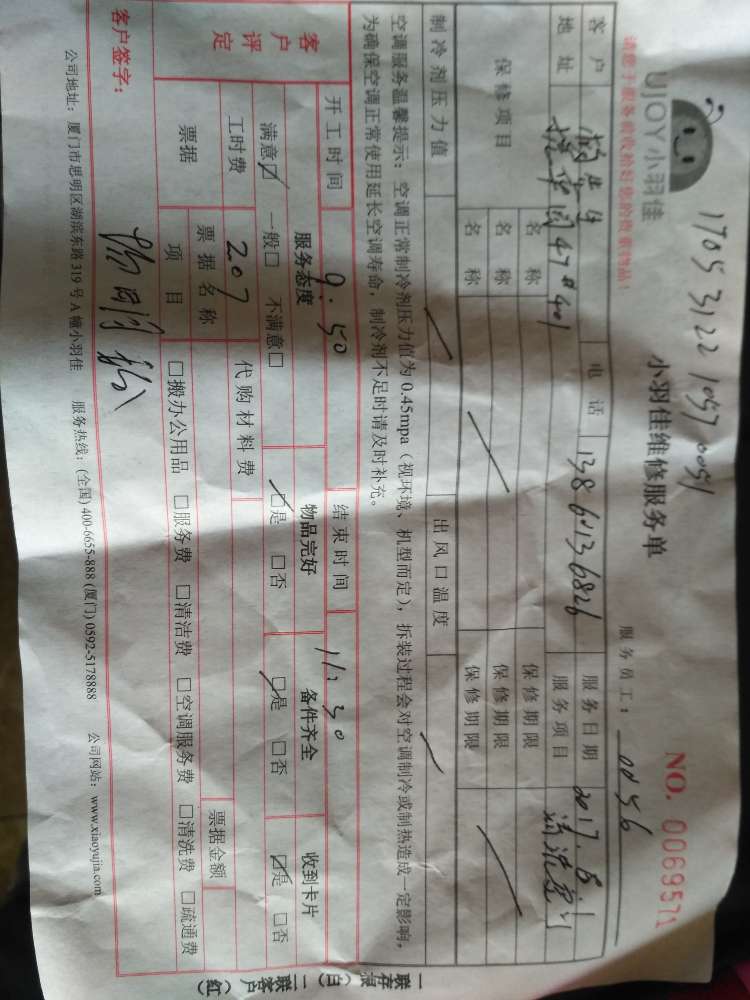 1705 3122 1057 0051
UJOY小羽佳
小羽佳维修服务单
NO. 0069571
请您于服务前收拾好您的贵重物品！
服务员工：0056
客户 电话 服务日期 2017.6.1
地址 47#401 服务项目 清洗
保修项目 名称 保修期限
名称 保修期限
名称 保修期限
制冷剂压力值 出风口温度
空调服务温馨提示：空调正常制冷剂压力值为0.45mpa（视环境、机型而定），拆装过程会对空调制冷或制热造成一定影响，
为确保空调正常使用延长空调寿命，制冷剂不足时请及时补充。
开工时间 9:50 结束时间
客户评定 服务态度 物品完好 备件齐全 收到卡片
满意☑ 一般□ 不满意□ ☑是 □否 ☑是 □否 ☑是 □否
工时费 207 代购材料费
票据 票据名称 票据金额
项目 □搬办公用品 □服务费 □清洁费 □空调服务费 □清洗费 □疏通费
客户签字：
公司地址：厦门市思明区湖滨东路319号A幢小羽佳 服务热线：(全国) 400-6655-888 (厦门) 0592-5178888 公司网站：www.xiaoyujia.com
一联存根（白）一联客户（红）